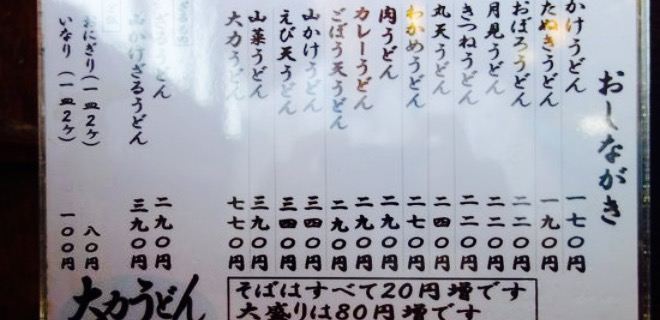 おしながき
かけうどん 一七〇円
たぬきうどん 一九〇円
おぼろうどん 二二〇円
月見うどん 二二〇円
きつねうどん 二二〇円
丸天うどん 二四〇円
わかめうどん 二七〇円
肉うどん 二九〇円
カレーうどん 二九〇円
ごぼう天うどん 二九〇円
山かけうどん 三四〇円
えび天うどん 三四〇円
山菜うどん 三九〇円
大力うどん 七七〇円
ざるうどん 二九〇円
山かけざるうどん 三九〇円
おにぎり(一皿2ケ) 八〇円
いなり(一皿2ケ) 一〇〇円
そばはすべて20円増です
大盛りは80円増です
大力うどん